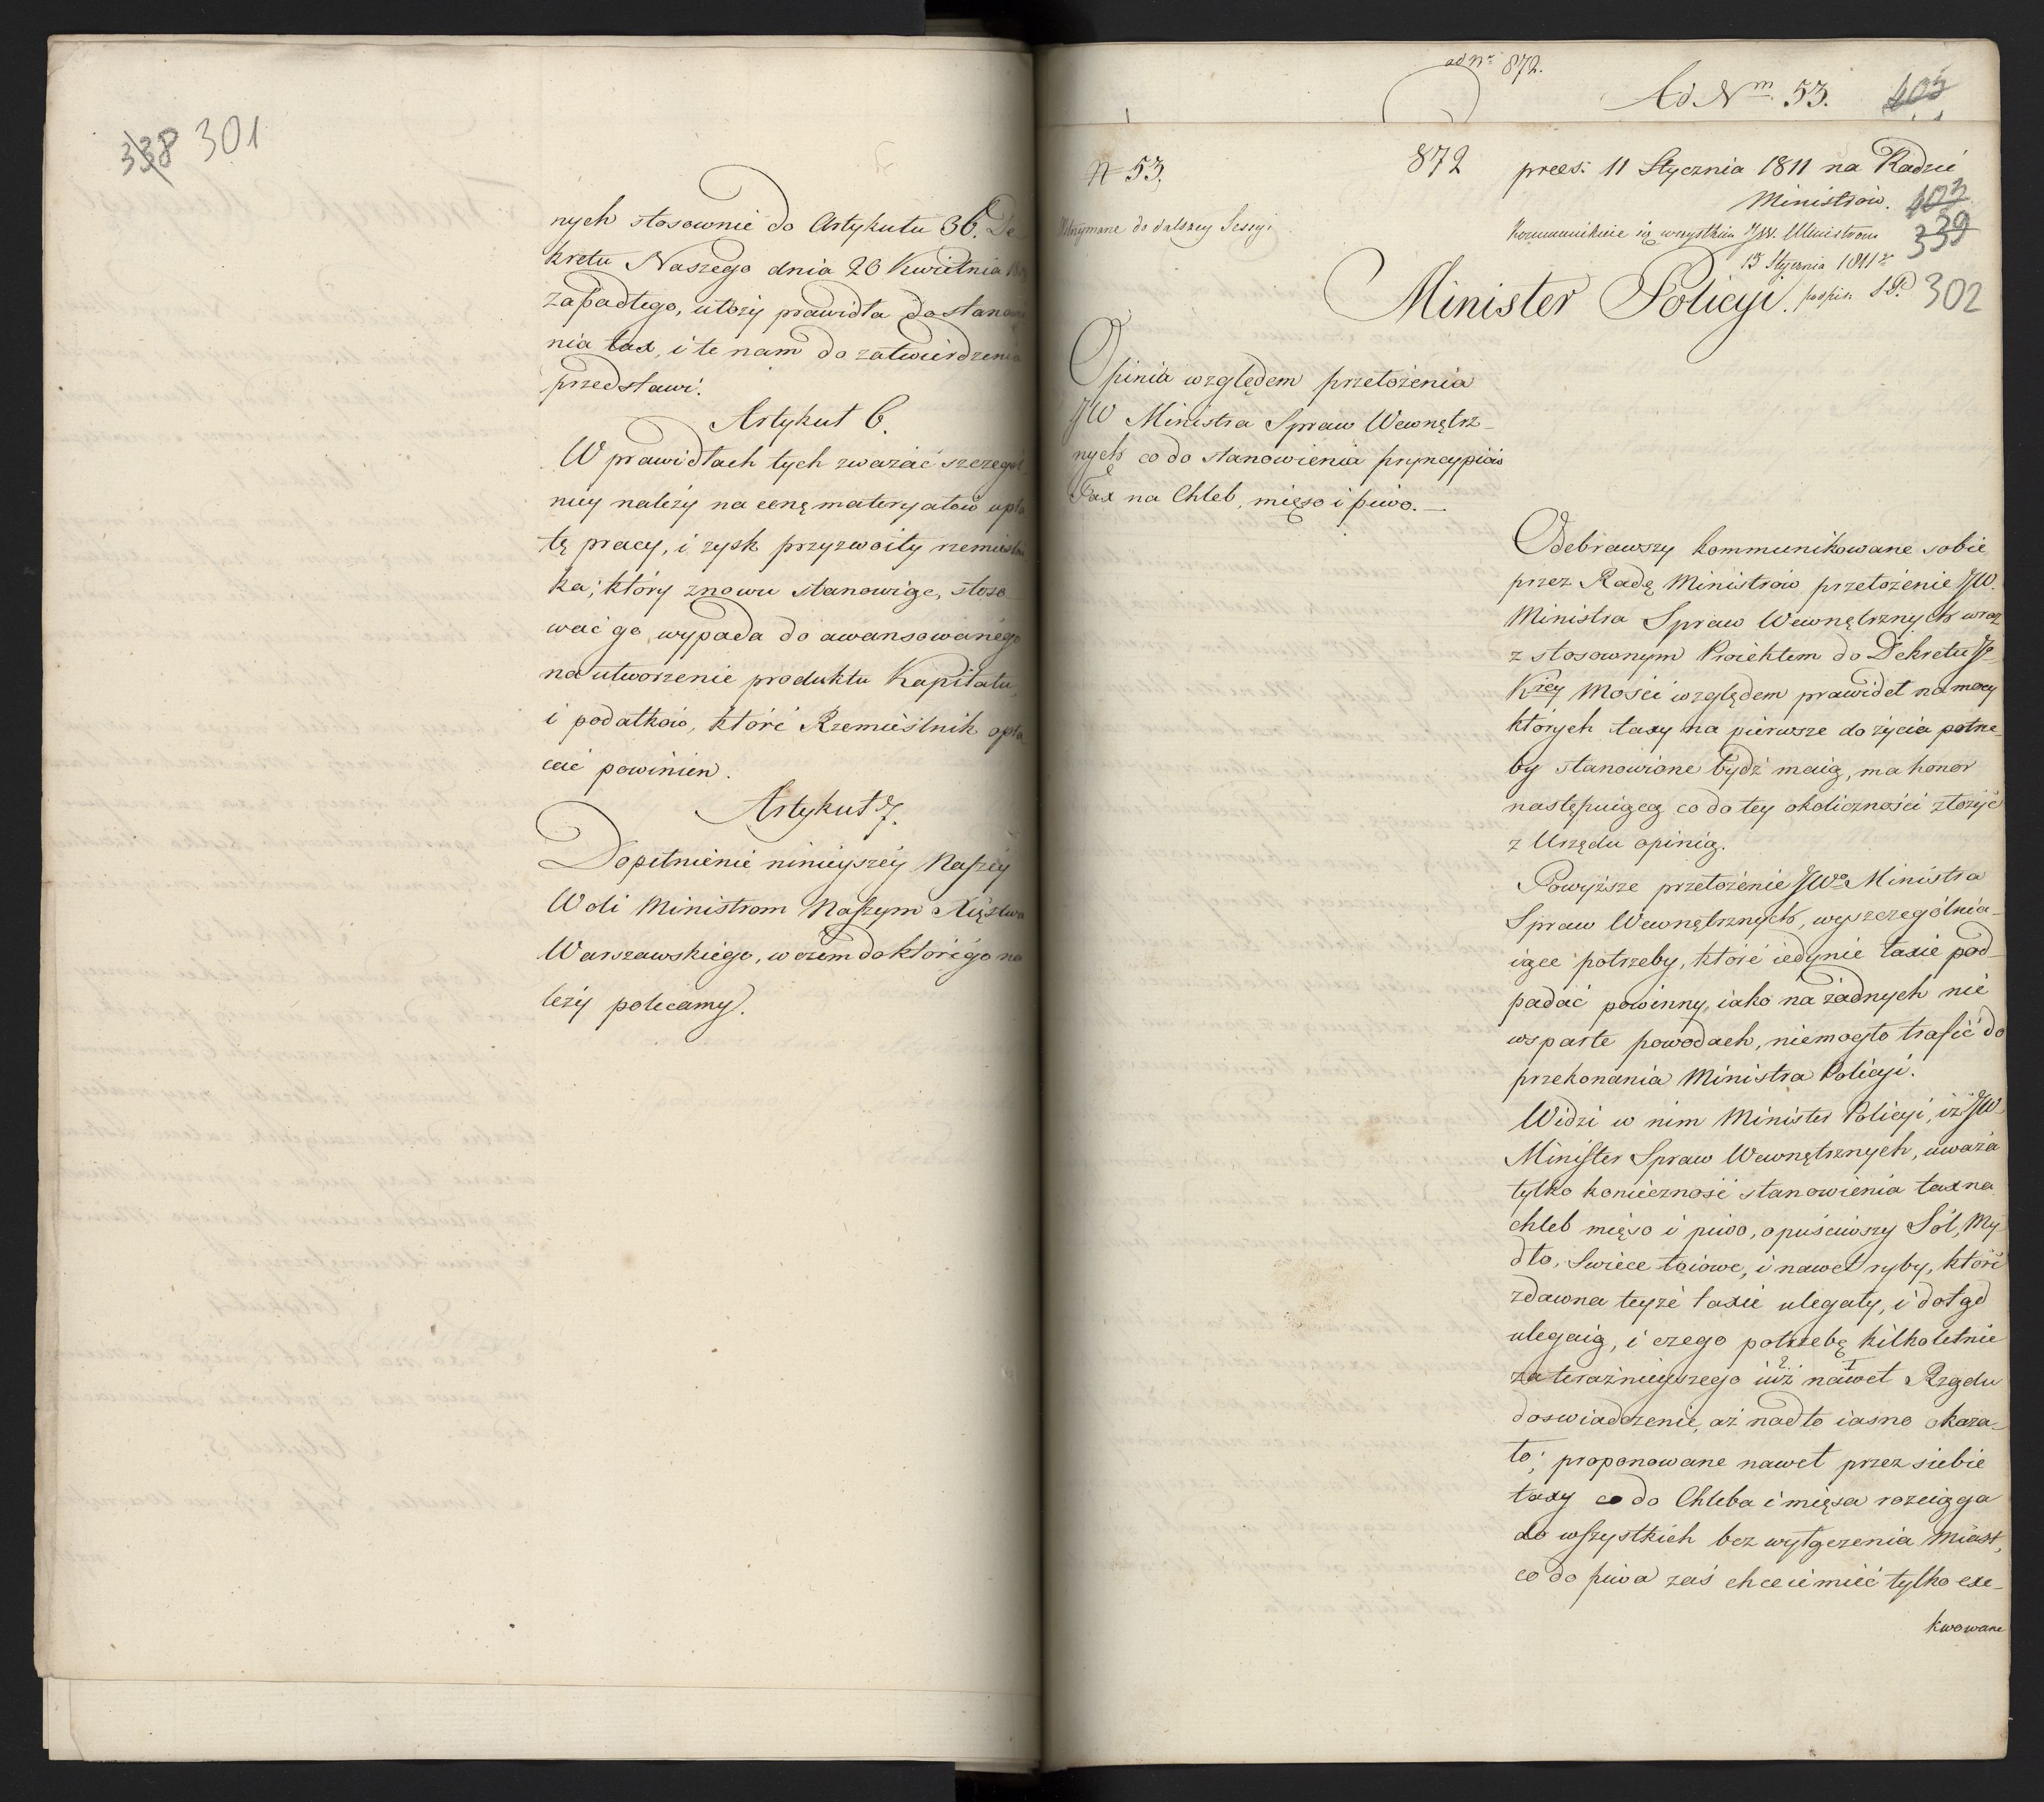 338 301
nych stosownie do Artykułu 36. De
kretu Naszego dnia 20 Kwietnia
zapadłego, ułoży prawidła do stanowi
nia tax, i te nam do zatwierdzenia
przedstawi.
Artykuł 6.
W prawidłach tych zważać szczegól
niey należy na cenę materyałów opła
tę pracy, i zysk przyzwoity rzemieślni
ka; który znowu stanowiąc, stoso
wać go wypada do awansowanego
na utworzenie produktu Kapitału,
i podatków, które Rzemieślnik opła
cać powinien.
Artykuł 7.
Dopełnienie ninieyszéy Naszéy
Woli Ministrom Naszym Xięstwa
Warszawskiego, w czem do którego na
leży polecamy.
ad Nr 872.
Ad Nm 53. 403
N 53.
872
prees: 11 Stycznia 1811 na Radzie
Ministrów. 403
339
Wstrzymane do dalszey Sessyi
Kommunikuie się wszystkim JJWW. Ministrom
13 Stycznia 1811 r
Minister Policyi. podpis: 302
Opinia względem przełożenia
JW Ministra Spraw Wewnętrz-
nych co do stanowienia pryncypiów
Tax na Chleb, mięso i piwo. —
Odebrawszy kommunikowane sobie
przez Radę Ministrów przełożenie JW.
Ministra Spraw Wewnętrznych wraz
z stosownym Proiektem do Dekretu J-
Kréy Mości względem prawideł na mocy
których taxy na pierwsze do życia potrze-
by stanowione bydź maią, ma honor
następuiącą co do tey okoliczności złożyć
z Urzędu opinią.
Powyższe przełożenie JWo Ministra
Spraw Wewnętrznych, wyszczególnia-
iące potrzeby, które iedynie taxie pod-
padać powinny, iako na żadnych nie
wsparte powodach, niemogło trafić do
przekonania Ministra Policyi.
Widzi w nim Minister Policyi, iż JW
Minister Spraw Wewnętrznych, uważa
tylko konieczność stanowienia tax na
chleb mięso i piwo, opuściwszy Sól, My
dło, Swiece łoiowe, i nawet ryby, które
zdawna teyże taxie ulegały, i dotąd
ulegaią, i czego potrzebę kilkoletnie
za teraźnieyszego iuż nawet Rządu
doswiadczenie, aż nadto iasno okaza-
ło; proponowane nawet przez siebie
taxy co do Chleba i mięsa rozciąga
do wszystkich bez wyłączenia Miast,
co do piwa zaś chce ie mieć tylko exe-
kwowane